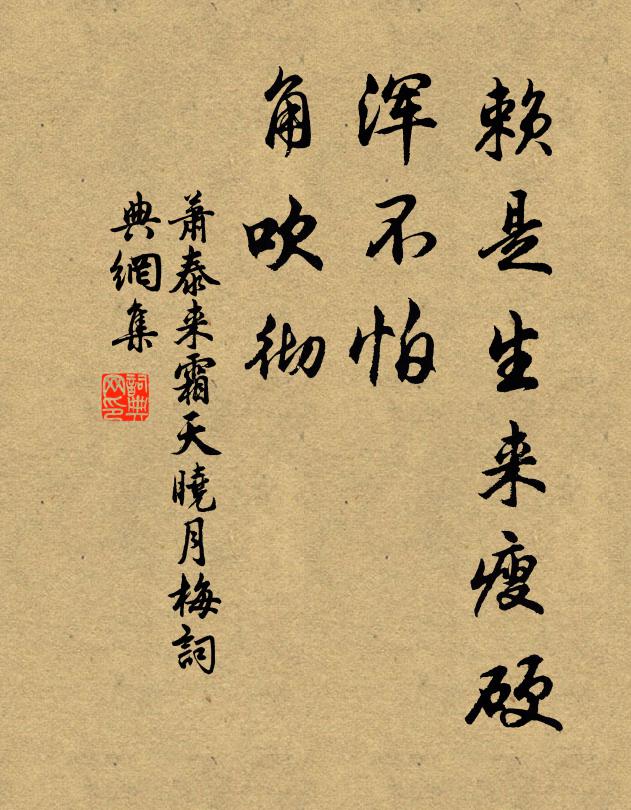 赖是生来瘦硬
浑不怕
角吹彻
萧泰来霜天曉月梅詞
典網集
詞典
网印